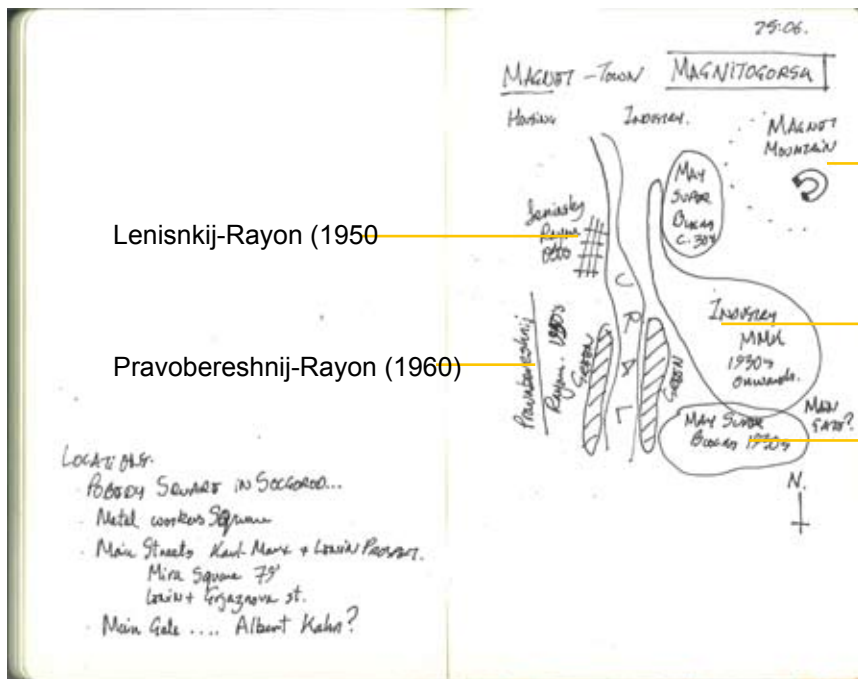 25.06.
MAGNET - TOWN MAGNITOGORSK
HOUSING INDUSTRY.
MAGNET
MOUNTAIN
MAY
SUPER
BLOCKS
C. 30s
Leninsky
Rayon
Lenisnkij-Rayon (1950
URAL
INDUSTRY
MMK
1930s
onwards.
Pravobereshnij
Rayon.
GREEN
GREEN
Pravobereshnij-Rayon (1960)
MAIN
GATE?
MAY SUPER
BLOCKS 1930s
N.
LOCATIONS.
- POBEDY SQUARE IN SOCGOROD...
- Metal workers Square
- Main Streets Karl Marx + LENIN PROSPECT.
Mira Square 75'
Lenin + Grjaznova st.
- Main Gate .... Albert Kahn?